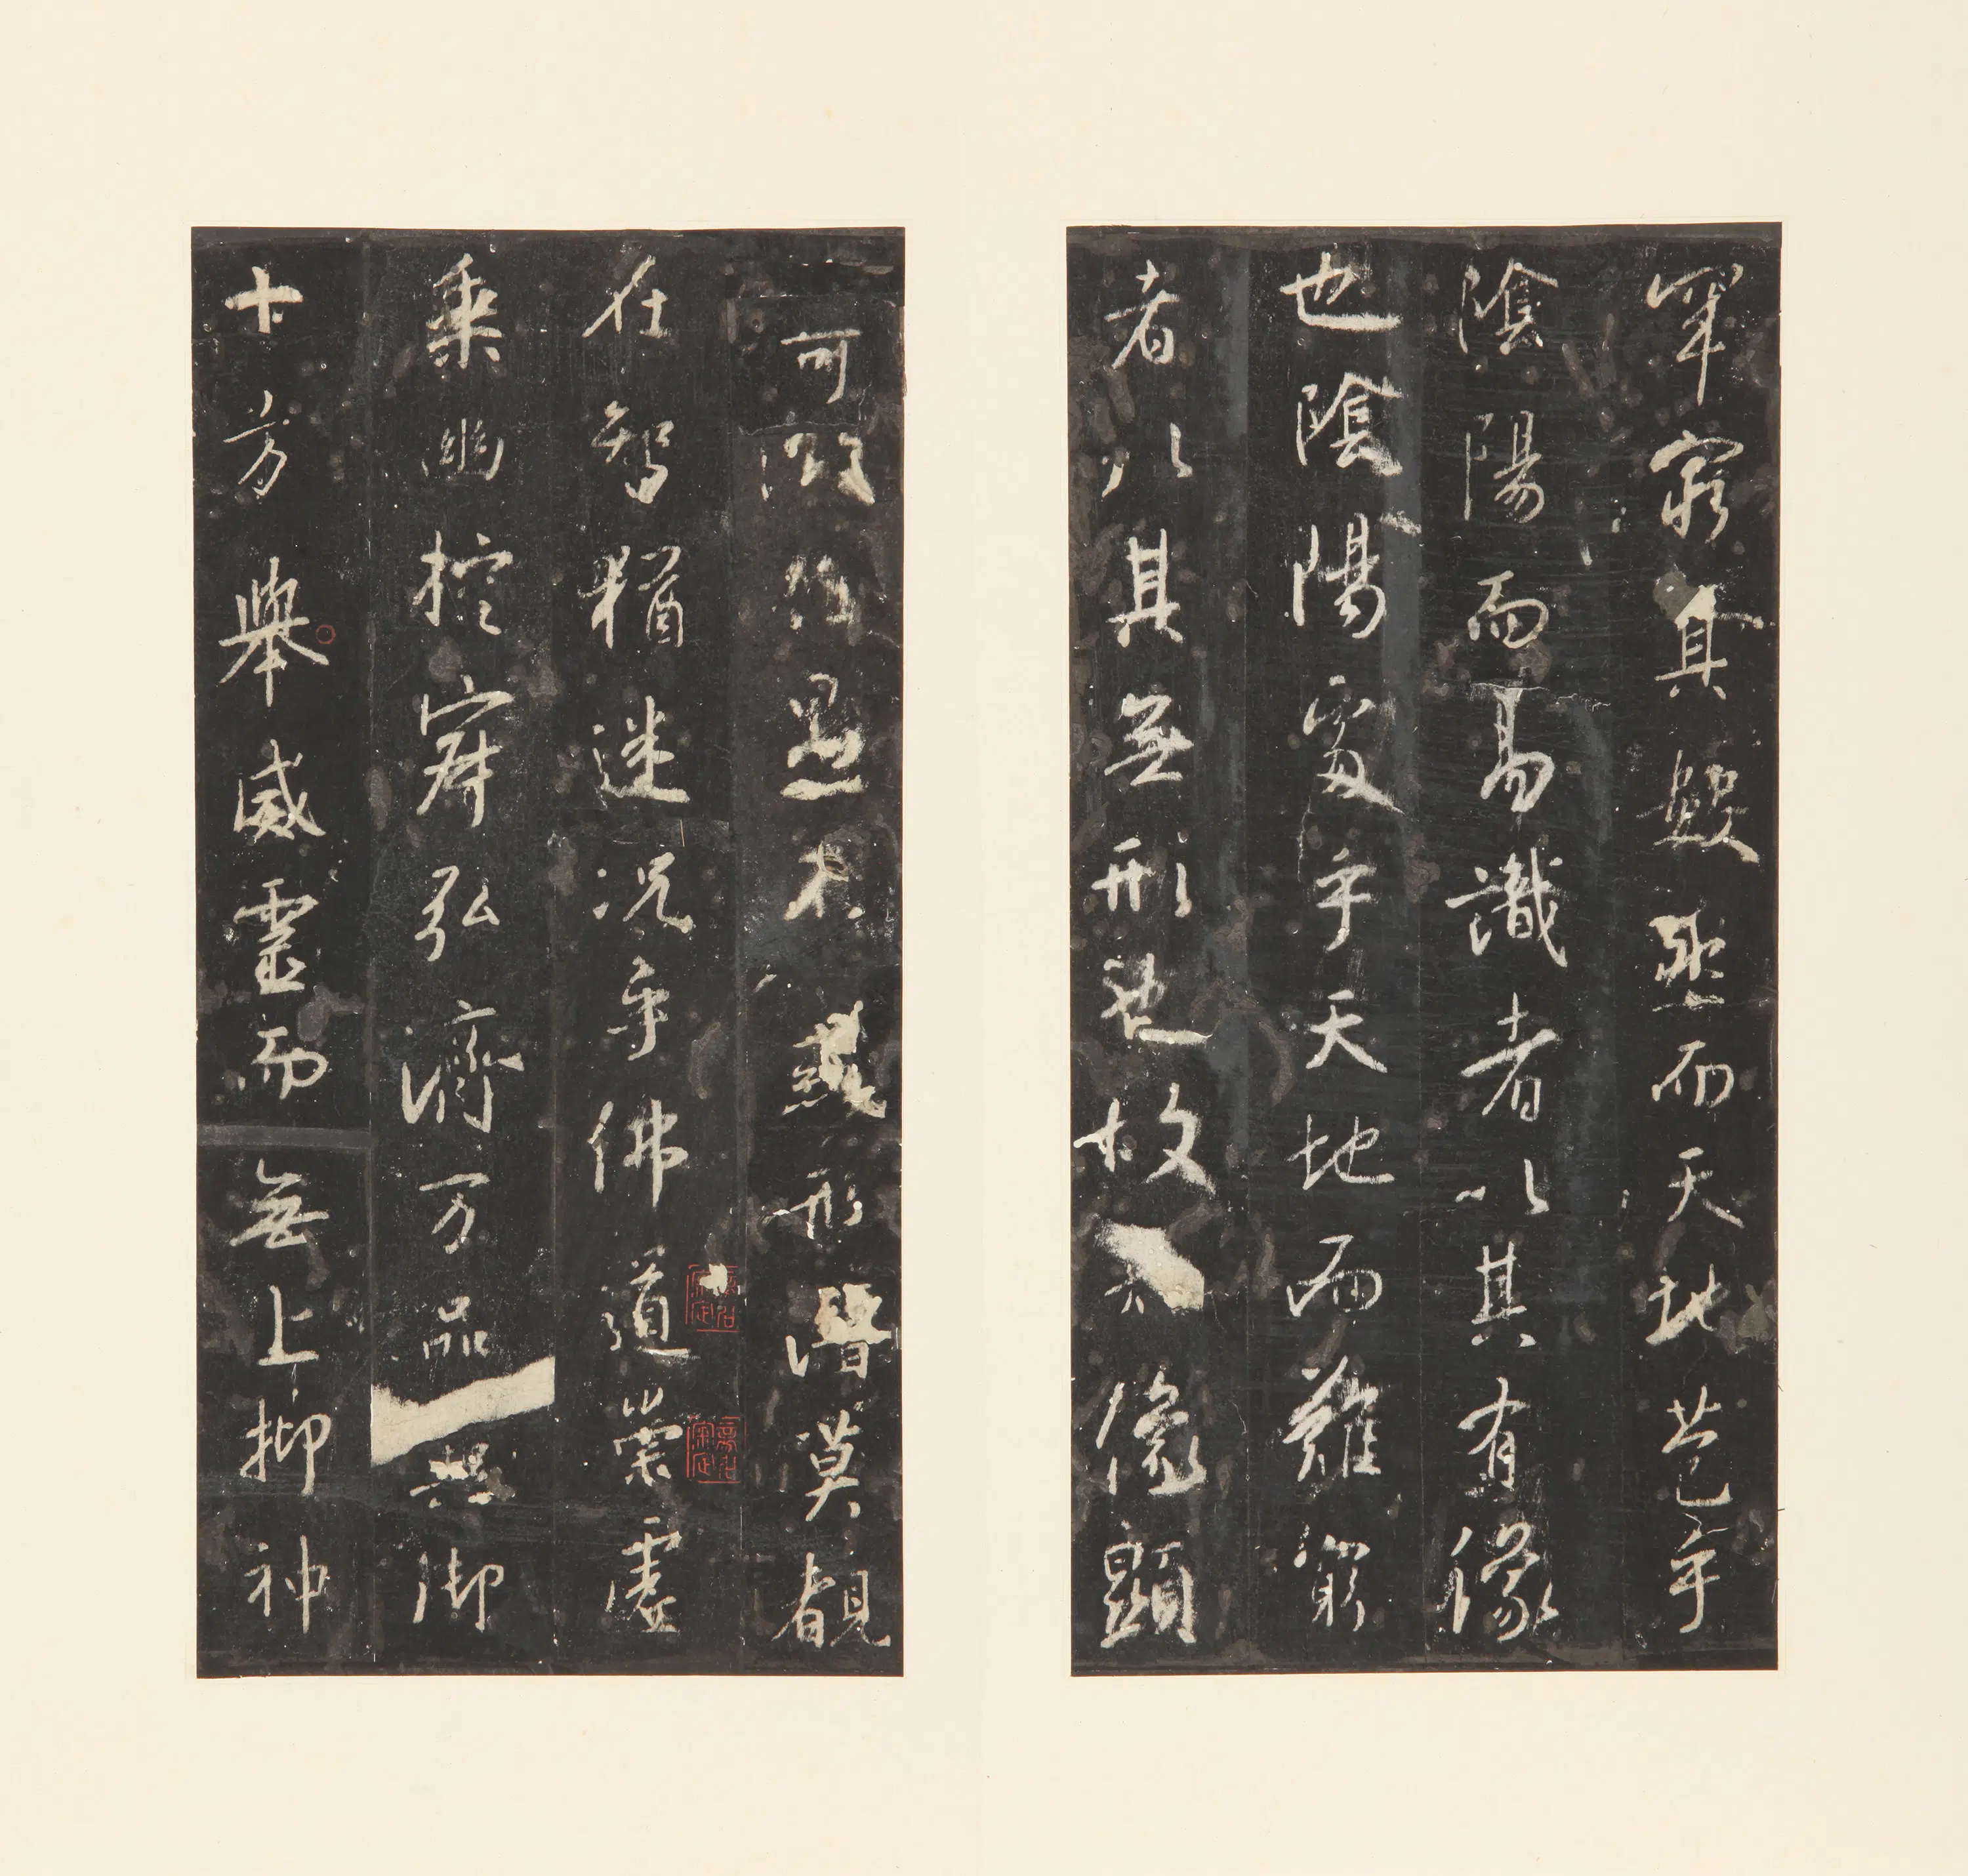 罕窮其數然而天地苞乎
陰陽而易識者以其有像
也陰陽處乎天地而難窮
者以其無形也故像顯
可徵雖愚不惑形潛莫覩
在智猶迷況乎佛道崇虛
乘幽控寂弘濟万品典御
十方舉威靈而無上抑神